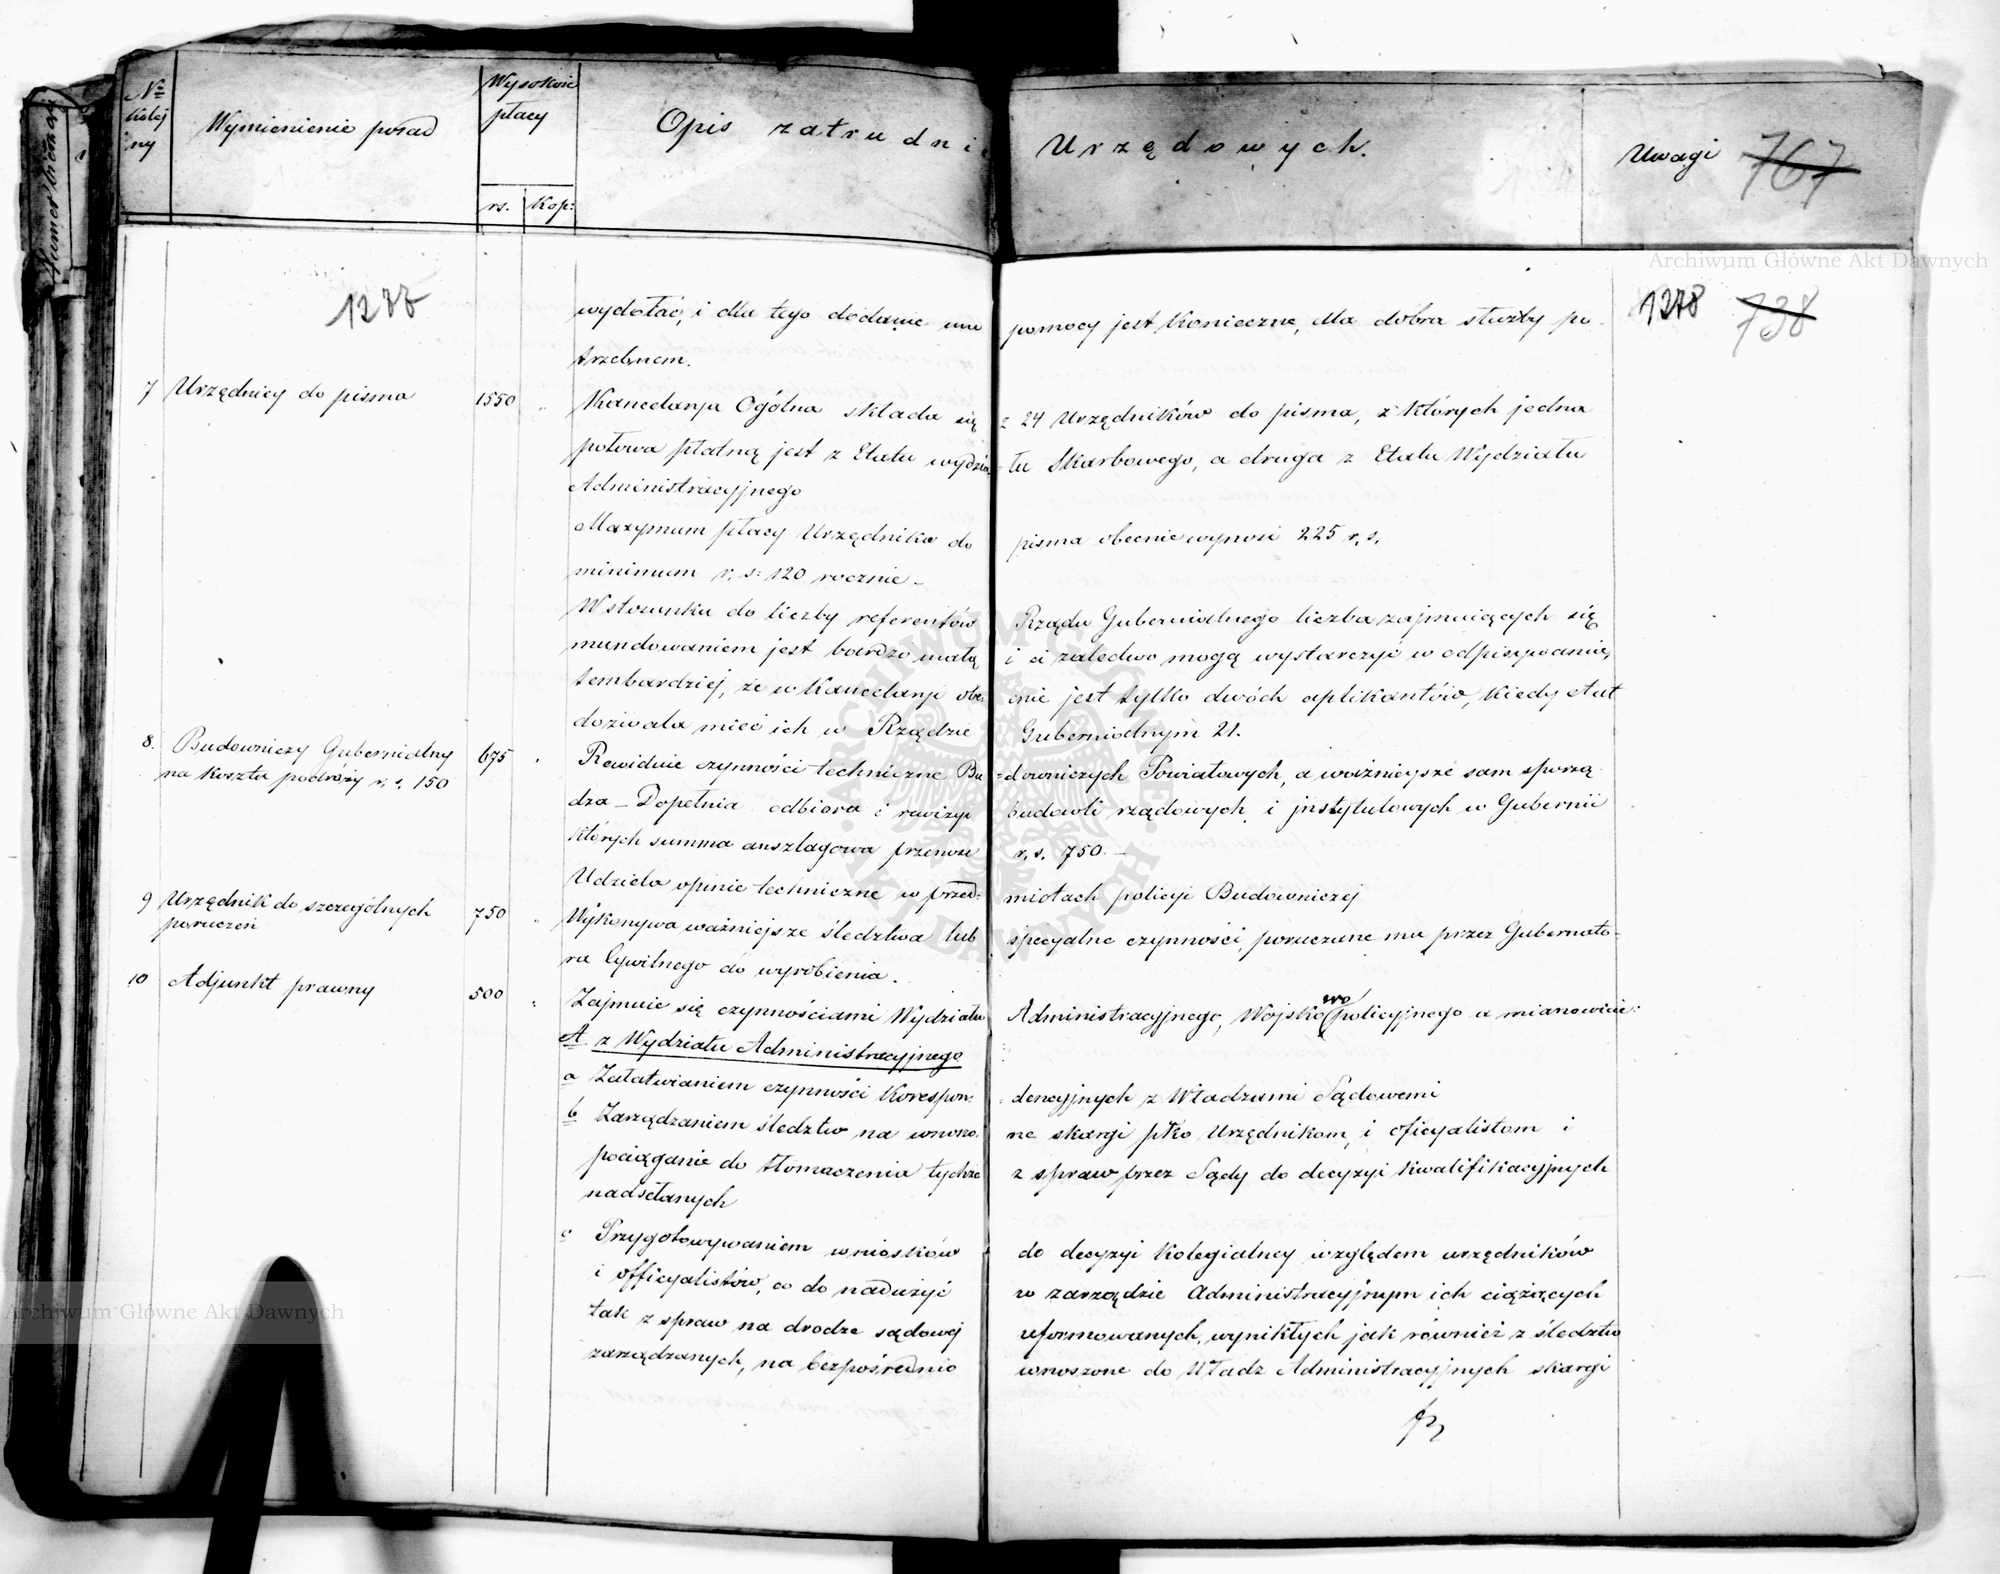 № kolejny
Wymienienie posad
Wysokość płacy
rs. Kop:
Opis zatrudni Urzędowych.
Uwagi 767
1277
1278 738
wydołać, i dla tego dodanie mu pomocy jest Konieczne, dla dobra służby po
trzebnem.
7 Urzędnicy do pisma 1550 „ Kancelarya Ogólna składa się z 24 Urzędników do pisma, z których jedna
połowa płatną jest z Etatu wydzia łu Skarbowego, a druga z Etatu Wydziału
Administracyjnego
Maxymum płacy Urzędnika do pisma obecnie wynosi 225 r. s.
minimum r. s: 120 rocznie –
W stosunku do liczby referentów Rządu Gubernialnego liczba zajmuiących się
mundowaniem jest bardzo małą i ci zaledwo mogą wystarczyć w odpisywaniu,
tembardziej, że w Kancelaryi obe- cnie jest tylko dwóch aplikantów, kiedy etat
dozwala mieć ich w Rządzie Gubernialnym 21.
8. Budowniczy Gubernialny 675 „ Rewiduie czynności techniczne Bu =downiczych Powiatowych, a ważnieysze sam sporzą
na koszta podróży r. s. 150
dza – Dopełnia odbiora i rewizyi budowli rządowych i jnstytutowych w Gubernii
których summa anszlagowa przenosi r. s. 750. –
Udziela opinie techniczne w przed= miotach policyi Budowniczej
9 Urzędnik do szczególnych poruczeń 750 „ Wykonywa ważniejsze śledztwa lub specyalne czynności, poruczane mu przez Gubernato=
ra Cywilnego do wyrobienia.
10 Adjunkt prawny 500 „ Zajmuie się czynnościami Wydziału Administracyjnego, Wojskowo policyjnego a mianowicie:
A z Wydziału Administracyjnego
a Załatwianiem czynności Korespon- dencyjnych z Władzami Sądowemi
b Zarządzaniem śledztw na wnoszo- ne skargi pko Urzędnikom, i oficyalistom i
pociąganie do tłomaczenia tychże z spraw przez Sądy do decyzyi kwalifikacyjnych
nadsełanych
c Przygotowywaniem wniosków do decyzyi Kolegialney względem urzędników
i officyalistów, co do nadużyć w zarządzie Administracyjnym ich ciążących
tak z spraw na drodze sądowej uformowanych, wynikłych jak również z śledztw
zarządzanych, na bezpośrednio wnoszone do Władz Administracyjnych skargi
Archiwum Główne Akt Dawnych
Archiwum Główne Akt Dawnych
ARCHIWUM GŁÓWNE AKT DAWNYCH